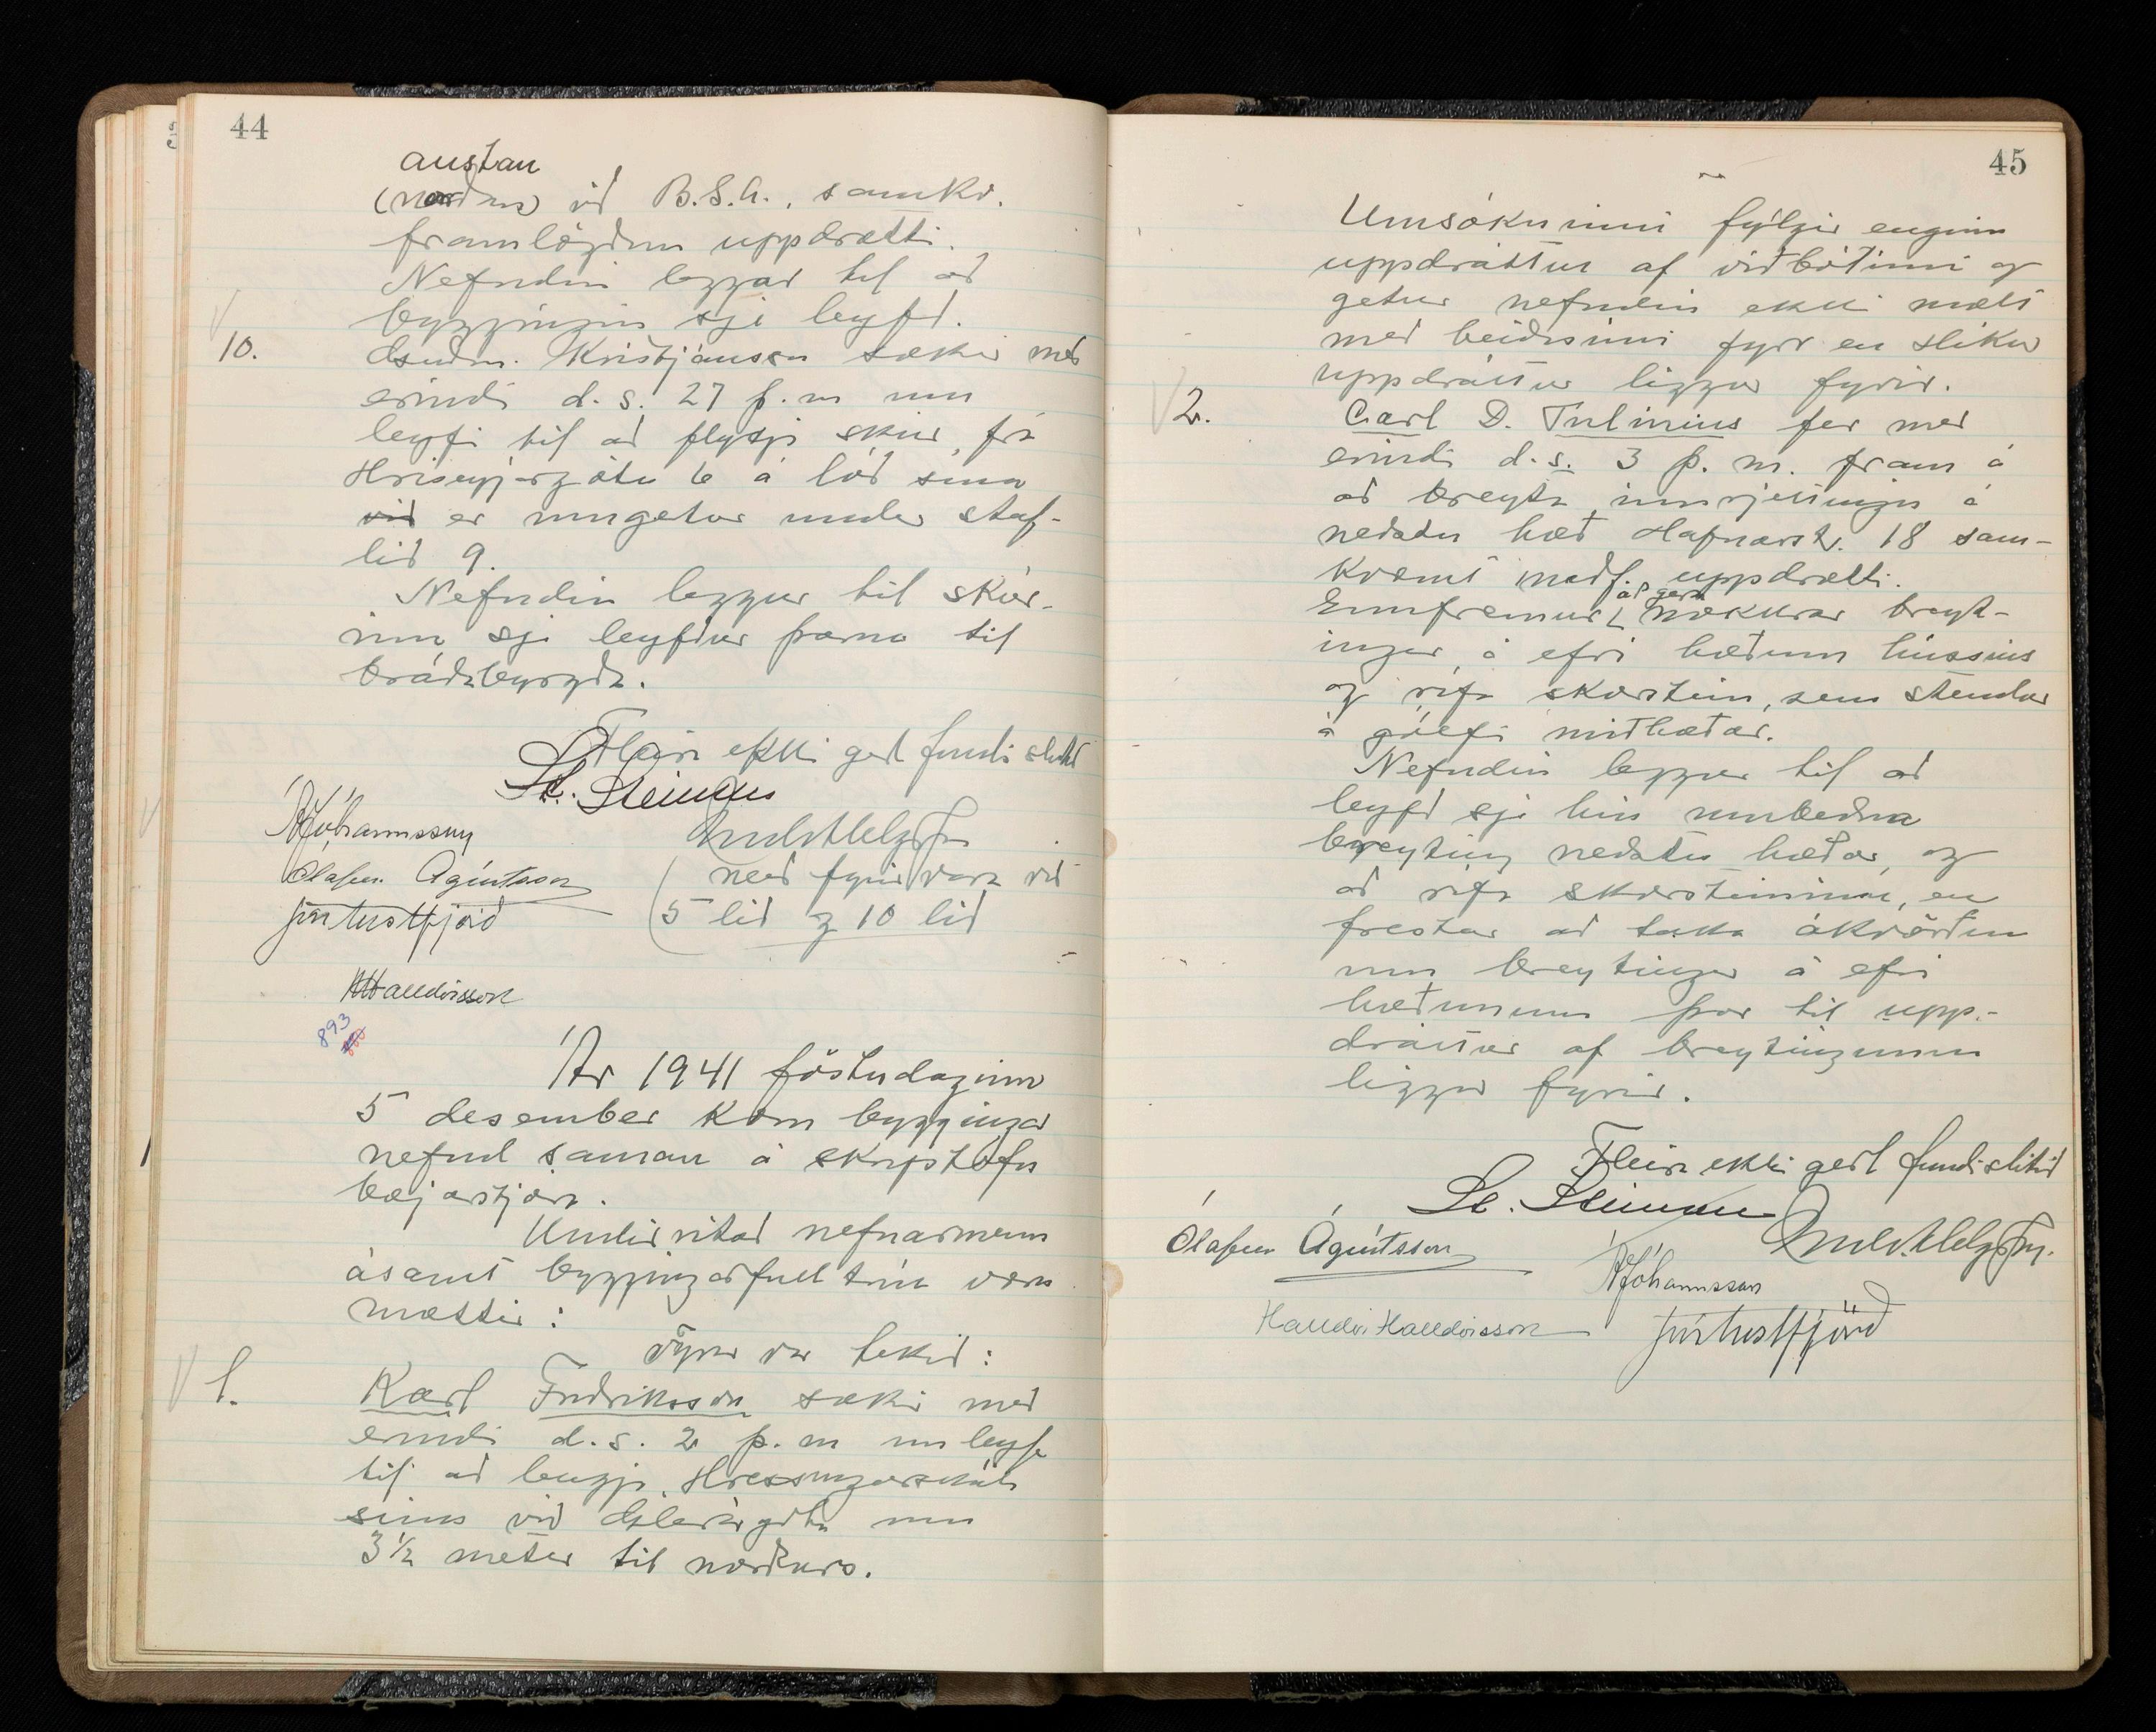 44
austan
(nordan) við B.S.A., samkv.
framlögðum uppdrætti.
Nefndin leggur til að
byggingin sje leyfð.
10. Guðm. Kristjánsson sækir með
erindi d.s. 27 þ.m um
leyfi til að flytja skúr frá
Hríseyjargötu 6 á lóð sína
við er umgetur undir staf-
lið 9.
Nefndin leggur til skúr-
inn sje leyfður þarna til
bráðabyrgða.
Fleira ekki gert fundi slitið
St. Steinsen
Á Jóhannsson
Halld. Helgason
Ólafur Ágústsson
með fyrirvara við
Indriði Helgason
5 lið og 10 lið
H Halldórsson
893
Ár 1941 föstudaginn
5 desember kom bygginga
nefnd saman á skrifstofu
bæjarstjóra.
Undirritað nefnarmenn
ásamt byggingarfulltrúa voru
mættir:
Fyrir var tekið:
1. Karl Friðriksson sækir með
erindi d.s. 2 þ.m um leyfi
til að lengja Hressingarskála
sinn við Glerárgötu um
3 1/2 meter til norðurs.
45
Umsókninni fylgir enginn
uppdráttur af viðbótinni og
getur nefndin ekki mælt
með beiðninni fyrr en slíkur
uppdráttur liggur fyrir.
2. Carl D. Tulinius fer með
erindi d.s. 3 þ.m. fram á
að breyta innrjettingu á
neðstu hæð Hafnarstr. 18 sam-
kvæmt meðf. uppdrætti.
Ennfremur að gera nokkrar breyt-
ingar á efri hæðum hússins
og rífa skorstein, sem stendur
á gólfi miðhæðar.
Nefndin leggur til að
leyfð sje hin umbeðna
breyting neðstu hæðar, og
að rífa skorsteininn, en
frestar að taka ákvörðun
um breytingar á efri
hæðunum þar til upp-
dráttur af breytingunum
liggur fyrir.
Fleira ekki gert fundi slitið
St. Steinsen
Ólafur Ágústsson
Á Jóhannsson
Halldór Halldórsson